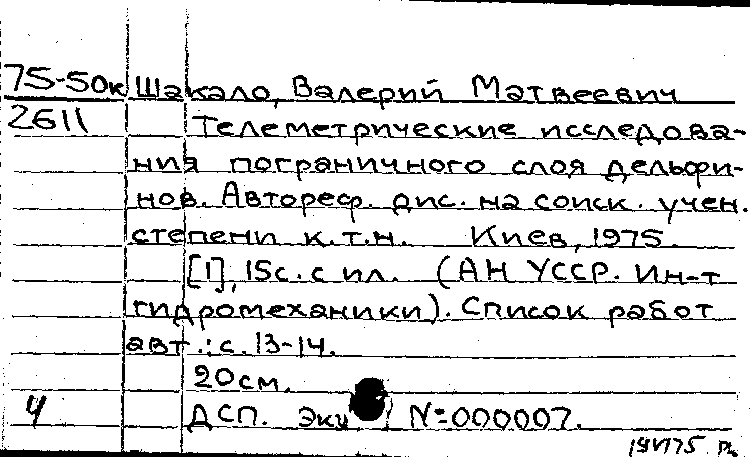 75-50к Шакало, Валерий Матвеевич
2611 Телеметрические исследова-
ния пограничного слоя дельфи-
нов. Автореф. дис. на соиск. учен.
степени к.т.н. Киев, 1975.
[1], 15с. с ил. (АН УССР. Ин-т
гидромеханики). Список работ
авт.: с. 13-14.
20см.
4 ДСП. Экз N=000007.